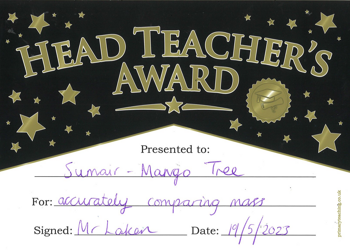 HEAD TEACHER'S
AWARD
Presented to:
Sumair - Mango Tree
For: accurately comparing mass
Signed: Mr Laken Date: 19/5/2023